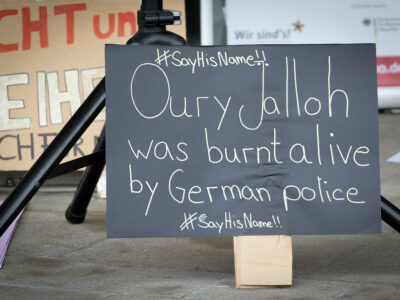 CHT un
EIHE
CHTER
Wir sind's!
#SayHisName!!
Oury Jalloh
was burnt alive
by German police
#SayHisName!!